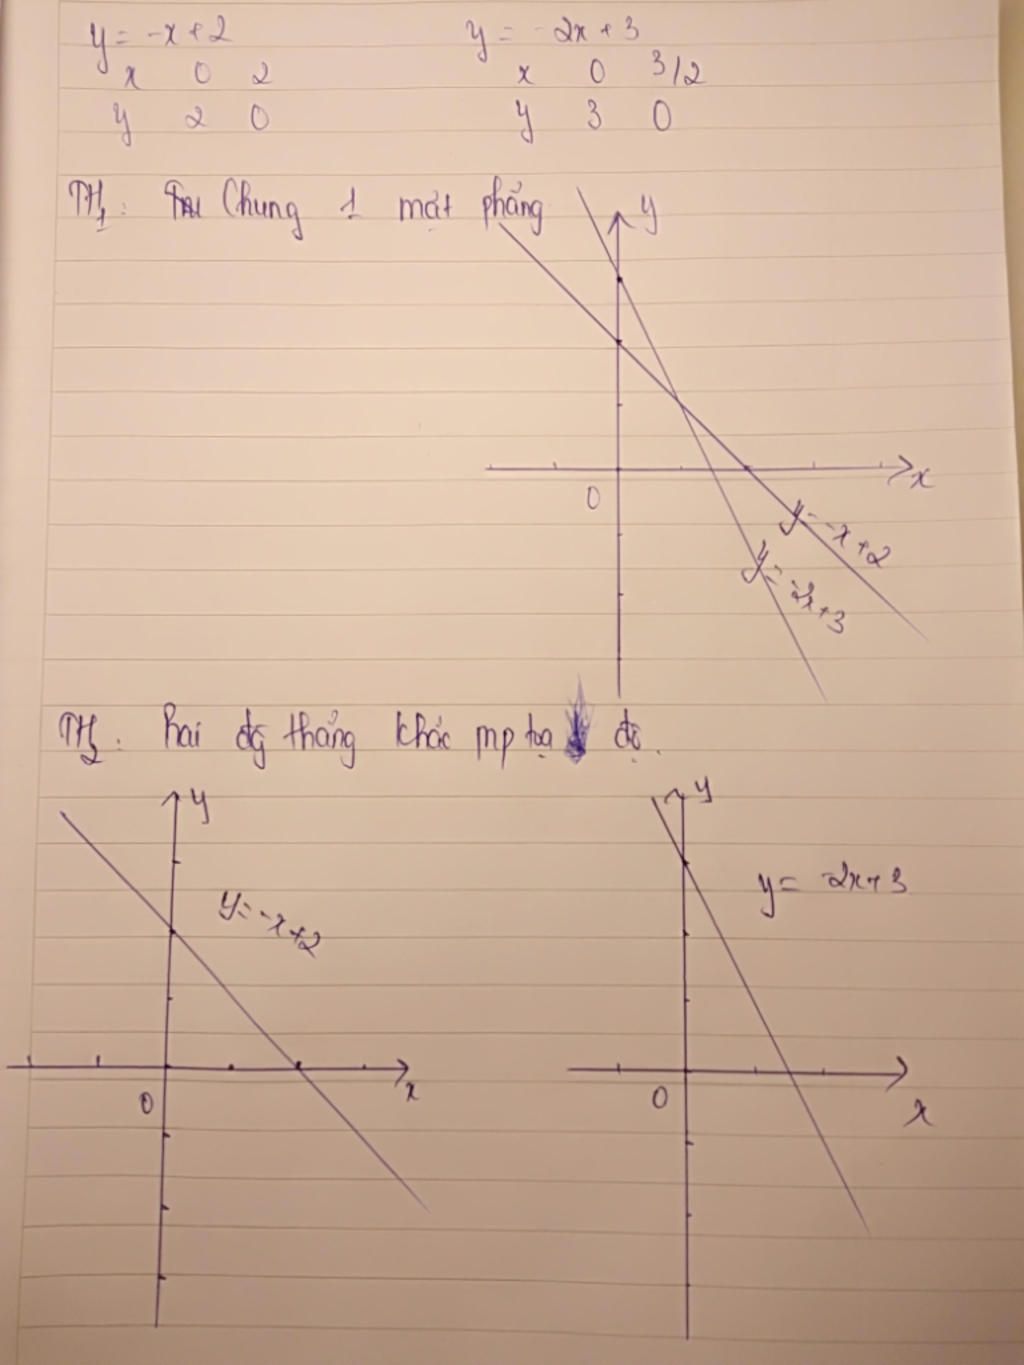 y = -x + 2
x 0 2
y 2 0
y = -2x + 3
x 0 3/2
y 3 0
TH1: Chung 1 mặt phẳng
y
x
0
y = -x + 2
y = -2x + 3
TH2: hai đg thẳng khác mp tọa độ.
y
y = -x + 2
0
x
y
y = -2x + 3
0
x